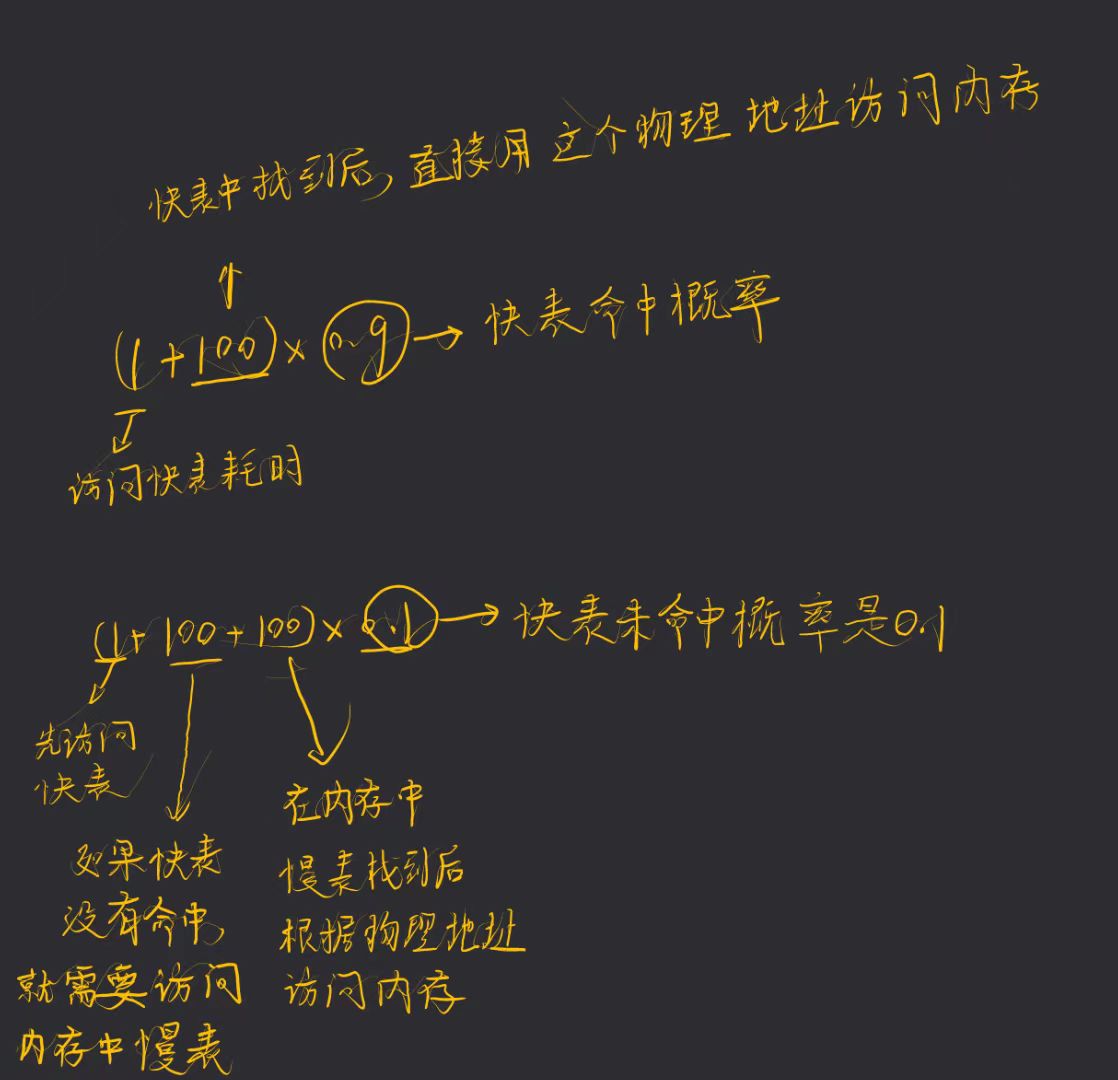 快表中找到后,直接用这个物理地址访问内存
(1+100)×0.9→快表命中概率
访问快表耗时
(1+100+100)×0.1→快表未命中概率是0.1
先访问
快表
如果快表
没有命中,
就需要访问
内存中慢表
在内存中
慢表找到后
根据物理地址
访问内存